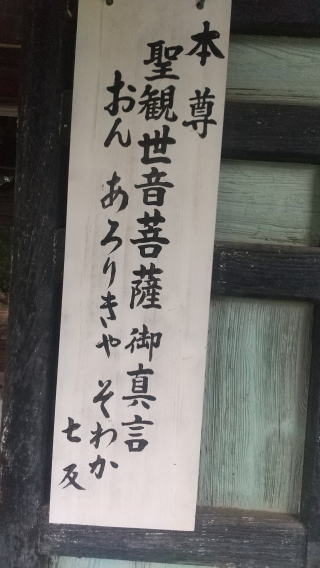 本尊
聖観世音菩薩御真言
おん あろりきや そわか
七反